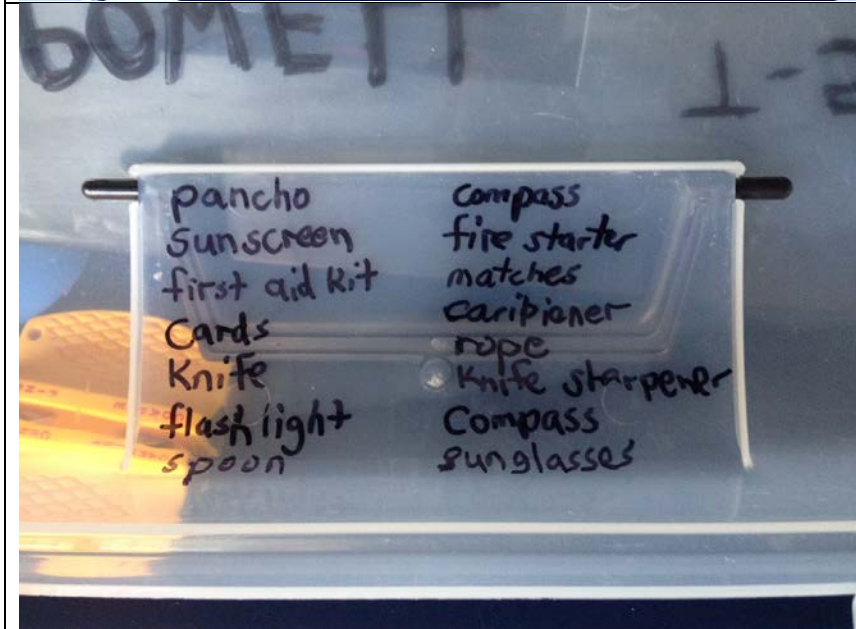 pancho
sunscreen
first aid kit
Cards
Knife
flashlight
spoon
Compass
fire starter
matches
caribiener
rope
Knife sharpener
Compass
sunglasses